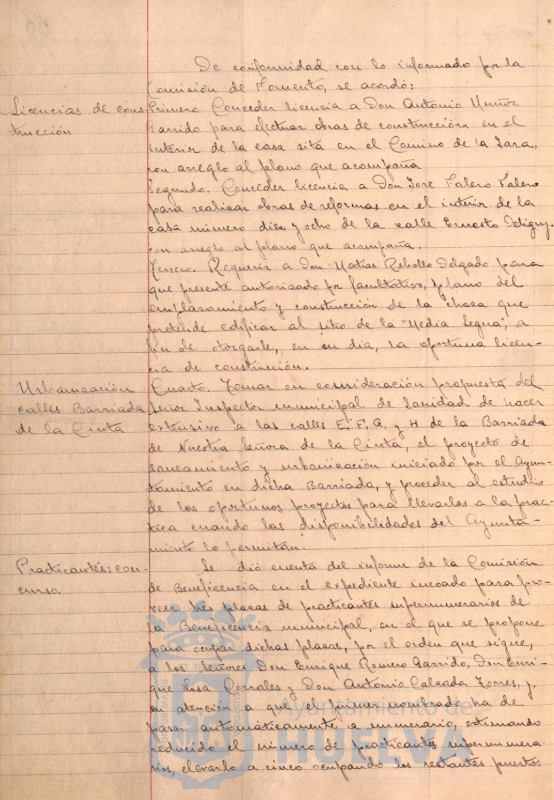 De conformidad con lo informado por la
Comisión de Fomento, se acordó:
Licencias de cons-
trucción
Primero. Conceder licencia a Don Antonio Muñoz
Garrido para efectuar obras de construcción en el
interior de la casa sita en el Camino de la Jara,
con arreglo al plano que acompaña
Segundo. Conceder licencia a Don José Valero Valero
para realizar obras de reformas en el interior de la
casa número diez y ocho de la calle Ernesto Deligny,
con arreglo al plano que acompaña.
Tercero. Requerir a Don Matías Rebollo Delgado para
que presente autorizado por facultativo, plano del
emplazamiento y construcción de la choza que
pretende edificar al sitio de la "Media legua", a
fin de otorgarle, en su día, la oportuna licen-
cia de construcción.
Urbanización
calles Barriada
de la Cinta
Cuarto. Tomar en consideración propuesta del
Señor Inspector municipal de Sanidad de hacer
extensivo a las calles E, F, G, y H de la Barriada
de Nuestra Señora de la Cinta, el proyecto de
saneamiento y urbanización iniciado por el Ayun-
tamiento en dicha Barriada, y proceder al estudio
de los oportunos proyectos para llevarlos a la prac-
tica cuando las disponibilidades del Ayunta-
miento lo permitan.
Practicantes: con-
curso.
Se dió cuenta del informe de la Comisión
de Beneficencia en el expediente incoado para pro-
veer tres plazas de practicantes supernumerarios de
la Beneficencia municipal, en el que se propone
para ocupar dichas plazas, por el orden que sigue,
a los Señores Don Enrique Romero Garrido, Don Enri-
que Corrales y Don Antonio Calzada Torres, y
en atención a que el primer nombrado ha de
pasar automáticamente a numerario, estimando
reducido el número de practicantes supernumera-
rios, elevarlo a cinco ocupando los restantes puestos
Ayuntamiento de
HUELVA